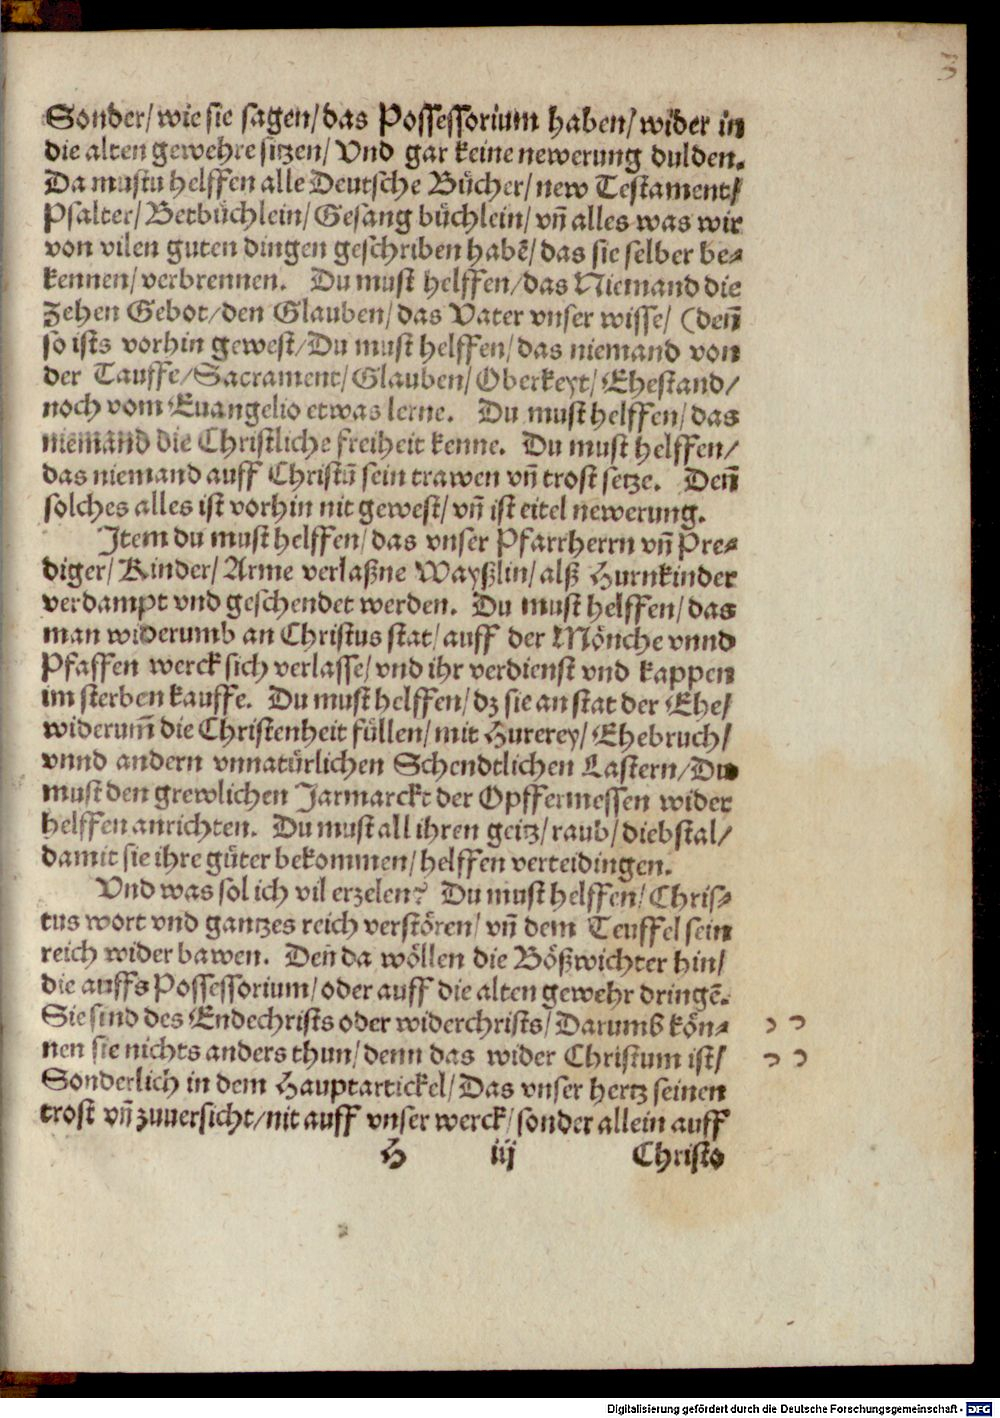 3
Sonder/ wie sie sagen/ das Possessorium haben/ wider in
die alten gewehre sitzen/ Vnd gar keine newerung dulden.
Da mustu helffen alle Deutsche Bücher/ new Testament/
Psalter/ Betbüchlein/ Gesang büchlein/ vn̄ alles was wir
von vilen guten dingen geschriben habē/ das sie selber be-
kennen/ verbrennen. Du must helffen/ das Niemand die
Zehen Gebot/ den Glauben/ das Vater vnser wisse/ (deñ
so ists vorhin gewest/ Du must helffen/ das niemand von
der Tauffe/ Sacrament/ Glauben/ Oberkeyt/ Ehestand/
noch vom Euangelio etwas lerne. Du must helffen/ das
niemand die Christliche freiheit kenne. Du must helffen/
das niemand auff Christū sein trawen vn̄ trost setze. Deñ
solches alles ist vorhin nit gewest/ vn̄ ist eitel newerung.
Item du must helffen/ das vnser Pfarrherrn vn̄ Pre-
diger/ Kinder/ Arme verlaßne Wayßlin/ alß Hurnkinder
verdampt vnd geschendet werden. Du must helffen/ das
man widerumb an Christus stat/ auff der Mönche vnnd
Pfaffen werck sich verlasse/ vnd ihr verdienst vnd kappen
im sterben kauffe. Du must helffen/ dz sie an stat der Ehe/
widerum̄ die Christenheit füllen/ mit Hurerey/ Ehebruch/
vnnd andern vnnatürlichen Schendtlichen Lastern/ Du
must den grewlichen Jarmarckt der Opffermessen wider
helffen anrichten. Du must all ihren geitz/ raub/ diebstal/
damit sie ihre güter bekommen/ helffen verteidingen.
Vnd was sol ich vil erzelen? Du must helffen/ Chris-
tus wort vnd gantzes reich verstören/ vn̄ dem Teuffel sein
reich wider bawen. Deñ da wöllen die Bößwichter hin/
die auffs Possessorium/ oder auff die alten gewehr dringē.
Sie sind des Endechrists oder widerchrists/ Darumb kön-
nen sie nichts anders thun/ denn das wider Christum ist/
Sonderlich in dem Hauptartickel/ Das vnser hertz seinen
trost vn̄ zuuersicht/ nit auff vnser werck/ sonder allein auff
H iij Christo
Digitalisierung gefördert durch die Deutsche Forschungsgemeinschaft - DFG